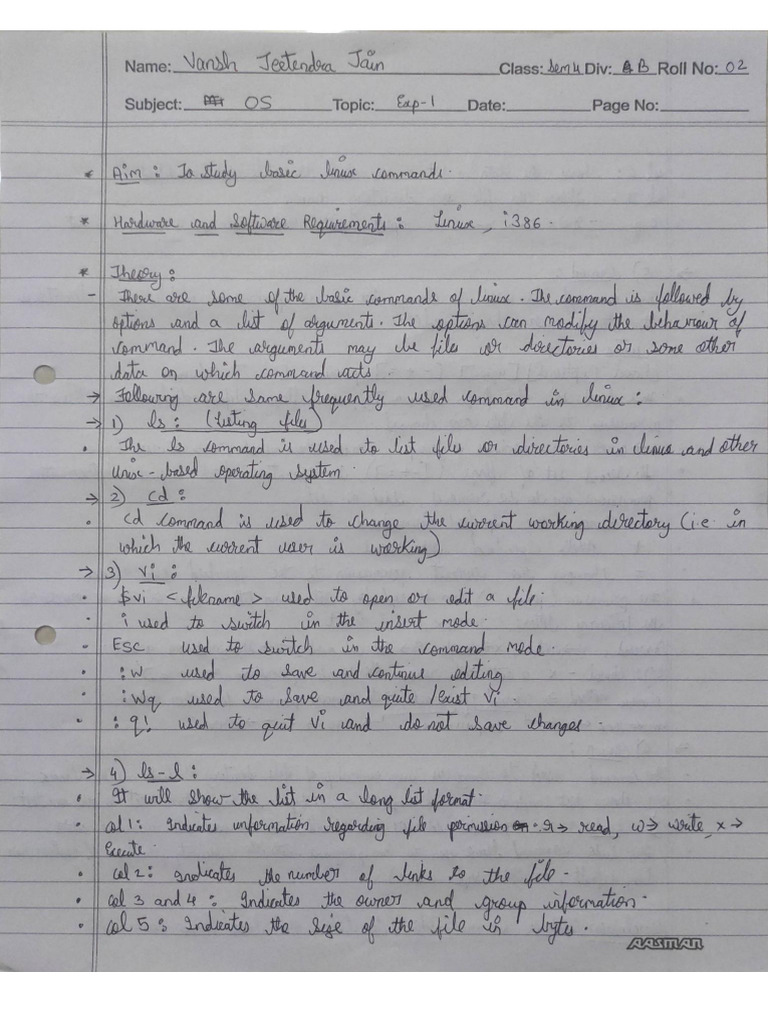 Name: Vansh Jeetendra Jain Class: Sem 4 Div: B Roll No: 02
Subject: OS Topic: Exp-1 Date: Page No:
* Aim : To study basic linux commands.
* Hardware and Software Requirements : Linux, i386.
* Theory :
- There are some of the basic commands of linux. The command is followed by
options and a list of arguments. The options can modify the behaviour of
command. The arguments may be files or directories or some other
data on which command acts.
→ Following are some frequently used command in linux :
→ 1) ls : (Listing files)
• The ls command is used to list files or directories in linux and other
Unix-based operating system.
→ 2) cd :
• cd command is used to change the current working directory (i.e. in
which the current user is working)
→ 3) vi :
• $vi <filename> used to open or edit a file.
• i used to switch in the insert mode.
- ESC used to switch in the command mode.
• :w used to save and continue editing
• :wq used to save and quite /exist vi.
• :q! used to quit vi and do not save changes.
→ 4) ls-l :
• It will show the list in a long list format.
• col 1: Indicates information regarding file permission. r→ read, w→ write, x→
Execute.
• col 2: indicates the number of links to the file.
• col 3 and 4: Indicates the owner and group information.
• col 5: Indicates the size of the file in bytes.
AASMAN